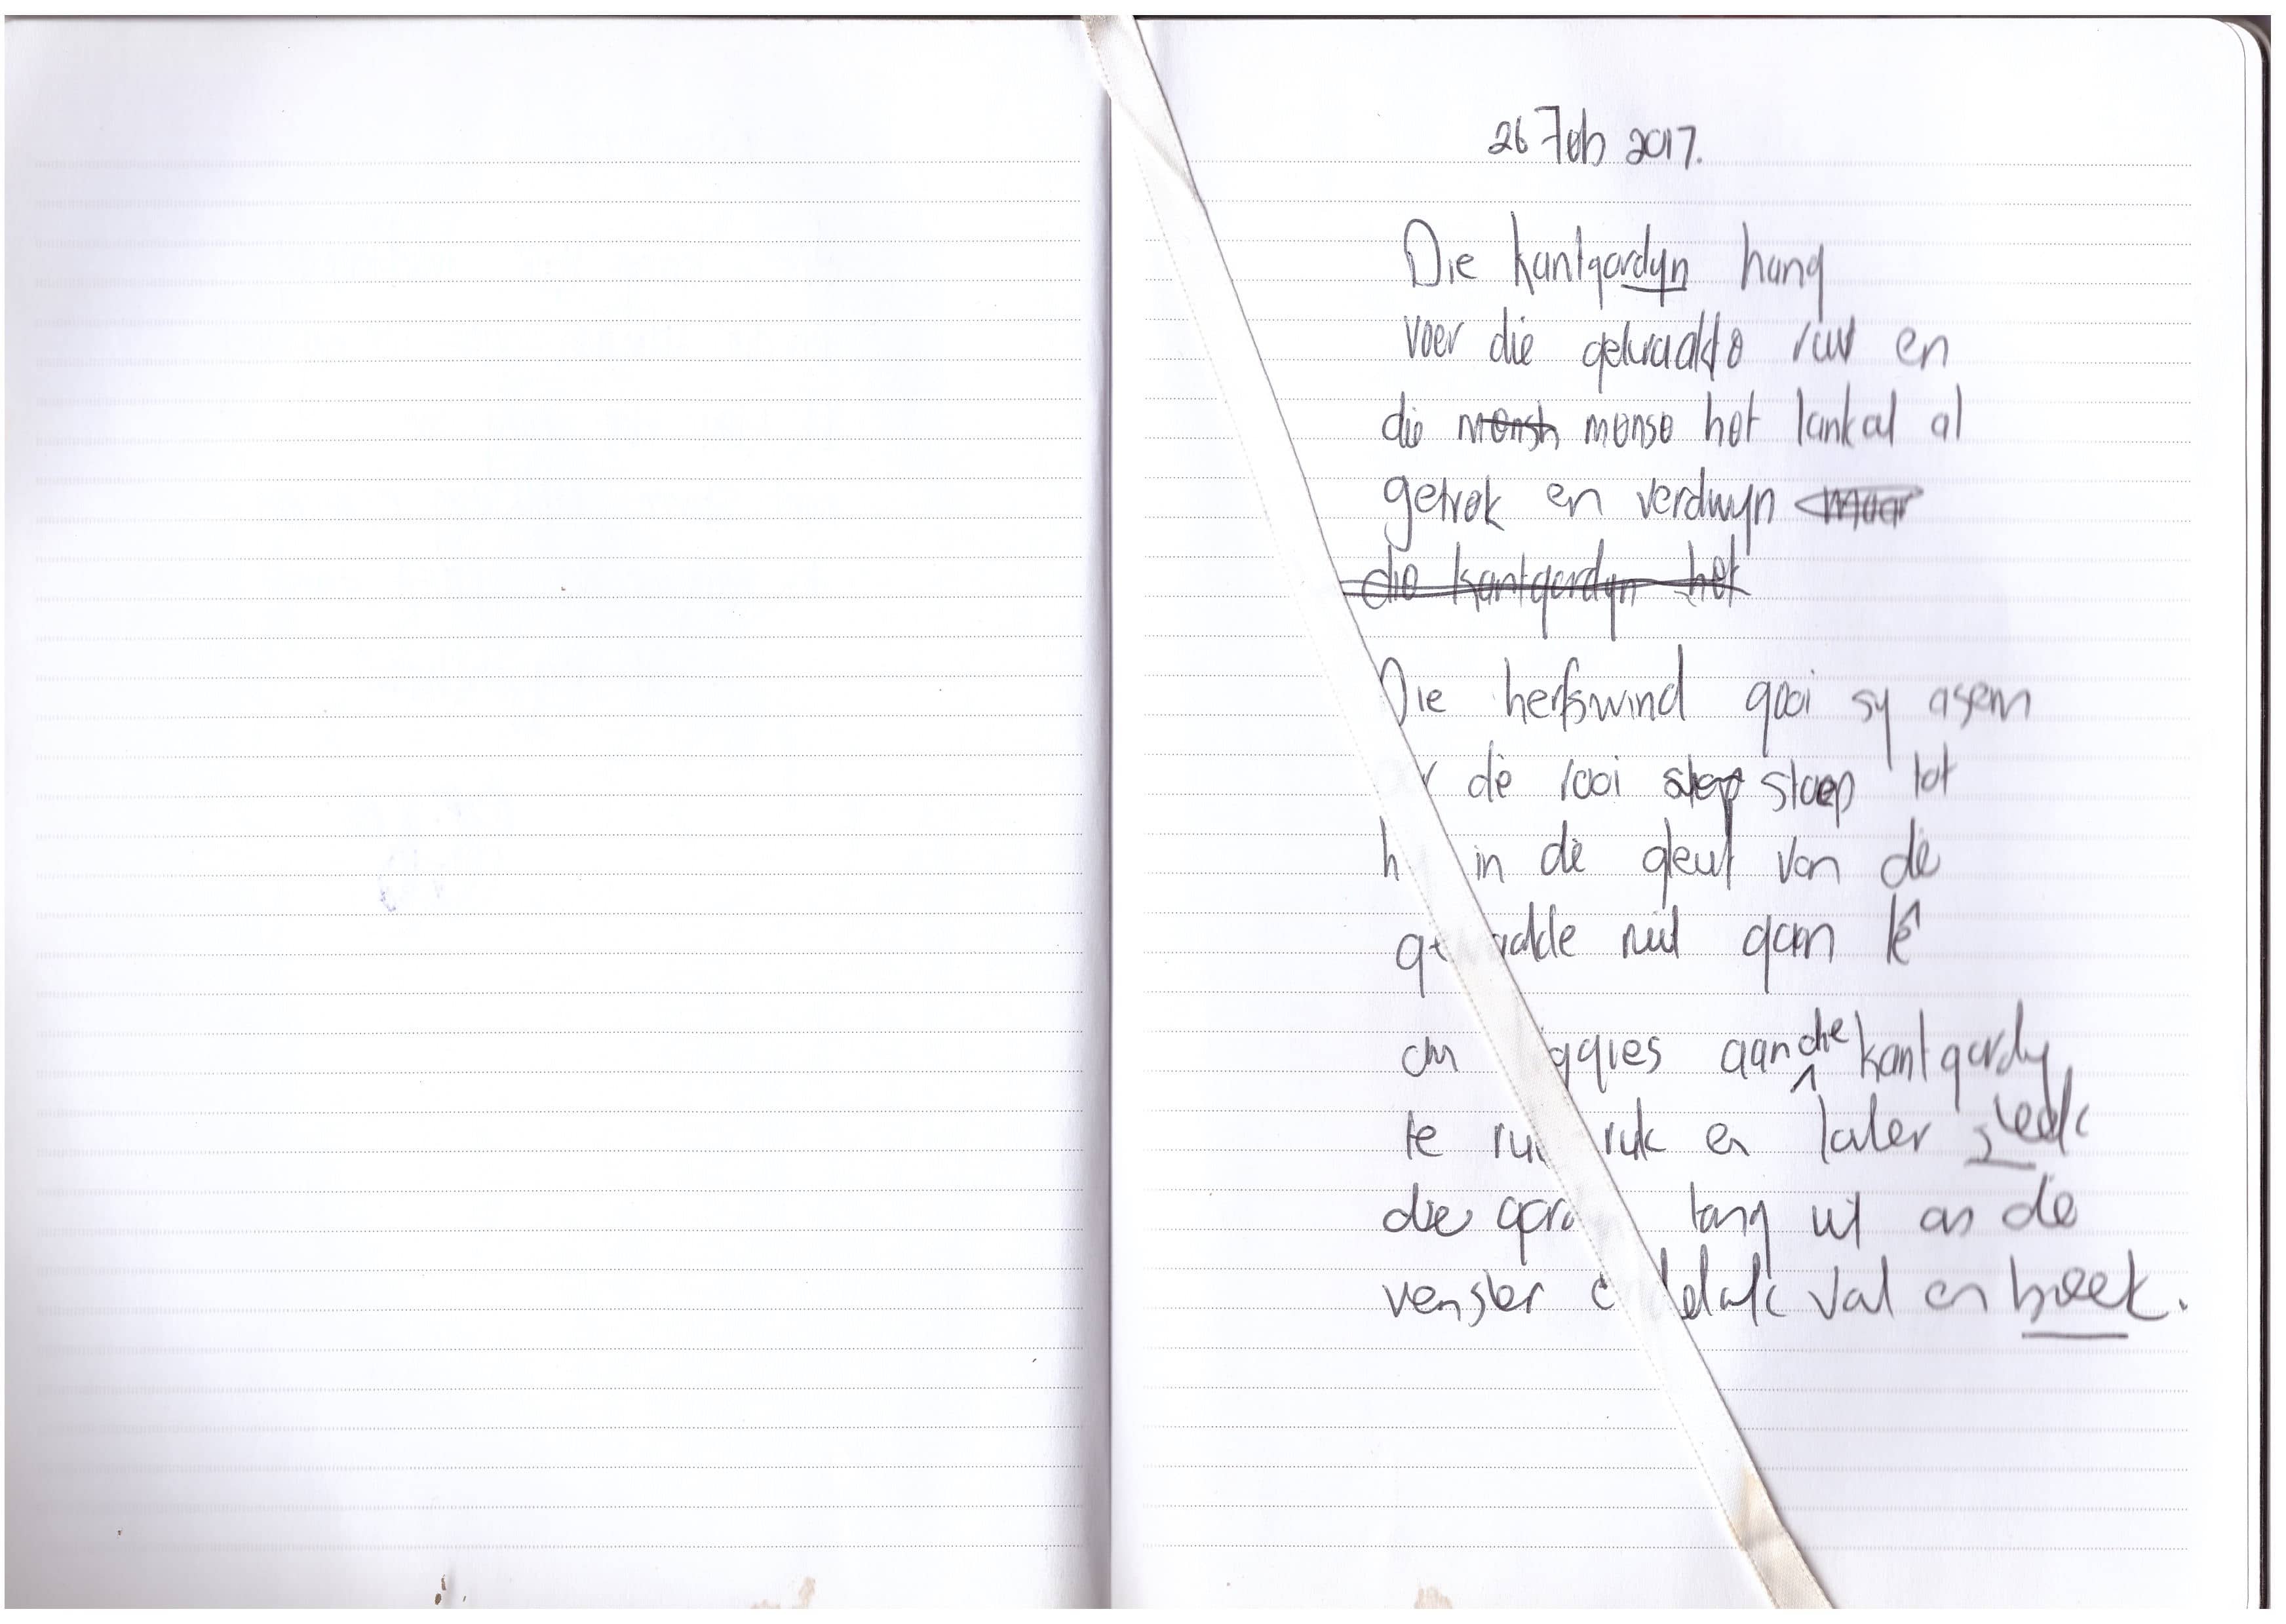 26 Feb 2017.
Die kantgordyn hang
voer die gekraakte ruit en
die mensh mense het lankal al
getrek en verdwyn maar
die kantgordyn het
Die herfswind gooi sy asem
die rooi stoep stoep tot
in die gleuf van die
ruit gaan lê
om aan die kantgordy
te ruk en later steek
die tong uit as die
venster val en breek.